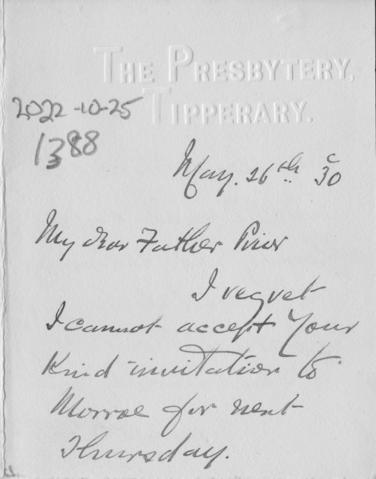 THE PRESBYTERY,
TIPPERARY.
2022-10-25
1388
May. 26th 30
My dear Father Prior
I regret
I cannot accept your
kind invitation to
Morroe for next
Thursday.